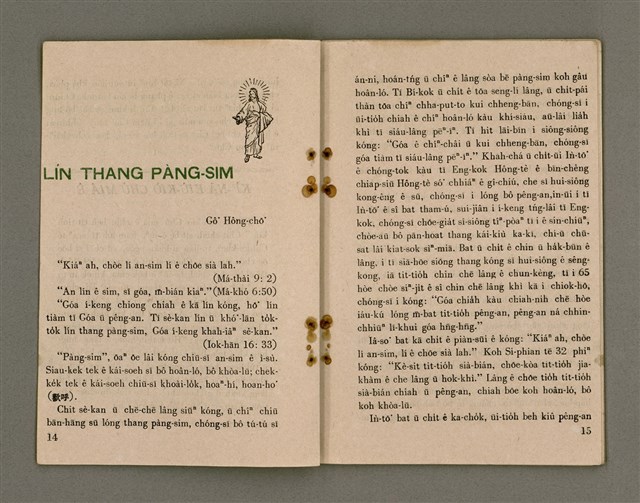 LÍN THANG PÀNG-SIM
Gô͘ Hông-chō͘
“Kiáⁿ ah, chòe lí an-sim lí ê chōe sià lah.”
(Má-thài 9: 2)
“An lín ê sim, sī góa, m̄-bián kiaⁿ.”(Má-khó 6:50)
“Góa í-keng chiong chiah ê kā lín kóng, hō͘ lín
tiàm tī Góa ū pêng-an. Tī sè-kan lín ū khó͘-lān tòk-
tòk lín thang pàng-sim, Góa í-keng khah-iâⁿ sè-kan.”
(Iok-hān 16: 33)
“Pàng-sim”, ōaⁿ ōe lâi kóng chiū-sī an-sim ê ì-sù.
Siau-kek tek ê kái-soeh sī bô hoân-ló, bô khòa-lū; chek-
kék tek ê kái-soeh chiū-sī khoài-lók, hoaⁿ-hí, hoan-ho͘
(歡呼).
Chit sè-kan ū chē-chē lâng siūⁿ kóng, ū chîⁿ chiū
bān-hāng sū lóng thang pàng-sim, chóng-sī bô tú-tú sī
14
án-ni, hoán-tńg ū chîⁿ ê lâng sòa bē pàng-sim koh gâu
hoân-ló. Tī Bí-kok ū chit ê tōa seng-lí lâng, ū chit-pái
thàn tōa chîⁿ chha-put-to kui chheng-bān, chóng-sī i
ūi-tióh chiah ê chîⁿ hoân-ló kàu khí-siáu, aū-lâi liáh
khì tī siáu-lâng pēⁿ-īⁿ. Tī hit lāi-bīn i siông-siông
kóng: “Góa ê chîⁿ-châi ū kui chheng-bān, chóng-sī
góa tiàm tī siáu-lâng pēⁿ-īⁿ.” Khah-chá ū chit-ūi Ìn-tō͘
ê chóng-tok kàu tī Eng-kok Hông-tè ê bīn-chêng
chiap-siū Hông-tè só͘ chhiáⁿ ê gî-chiú, che sī hui-siông
kong-êng ê sū, chóng-sī i lóng bô pêng-an,in-ūi i tī
Ìn-tō͘ ê sî bat tham-ù, sui-jiân i í-keng tńg-lâi tī Eng-
kok, chóng-sī chōe-giát sî-siông tîⁿ-pòaⁿ tī i ê sin-chiūⁿ,
chòe-āu bô pān-hoat thang kái-kiù ka-kī, chī-ú chū-
sat lâi kiat-sok sìⁿ-miā. Bat ū chit ê chin ū hák-būn ê
lâng, i tī siā-hōe siōng thang kóng sī hui-siông ê sêng-
kong, iā tit-tióh chin chē lâng ê chun-kèng, tī i 65
hòe chòe sìⁿ-jit ê sî chin chē lâng khì kā i chiok-hō,
chóng-sī i kóng: “Góa chiáh kàu chiah-nih chē hòe
iáu-kú lóng m̄-bat tit-tióh pêng-an, pêng-an ná chhin-
chhiūⁿ lī-khui góa hn̄g-hn̄g.”
Iâ-so͘ bat kā chit ê piàn-sūi ê kóng: “Kiáⁿ ah, chòe
lí an-sim, lí ê chōe sià lah.” Koh Si-phian tē 32 phiⁿ
kóng: “Kè-sit tit-tióh sià-bián, chōe-kòa tit-tióh jia-
khàm ê che lâng ū hok-khì.” Lâng ê chōe tióh tit-tióh
sià-bián chiah ū pêng-an, chiah bōe koh hoân-ló, bô
koh khòa-lū.
Ìn-tō͘ bat ū chit ê ka-chók, ūi-tióh beh kiû pêng-an
15